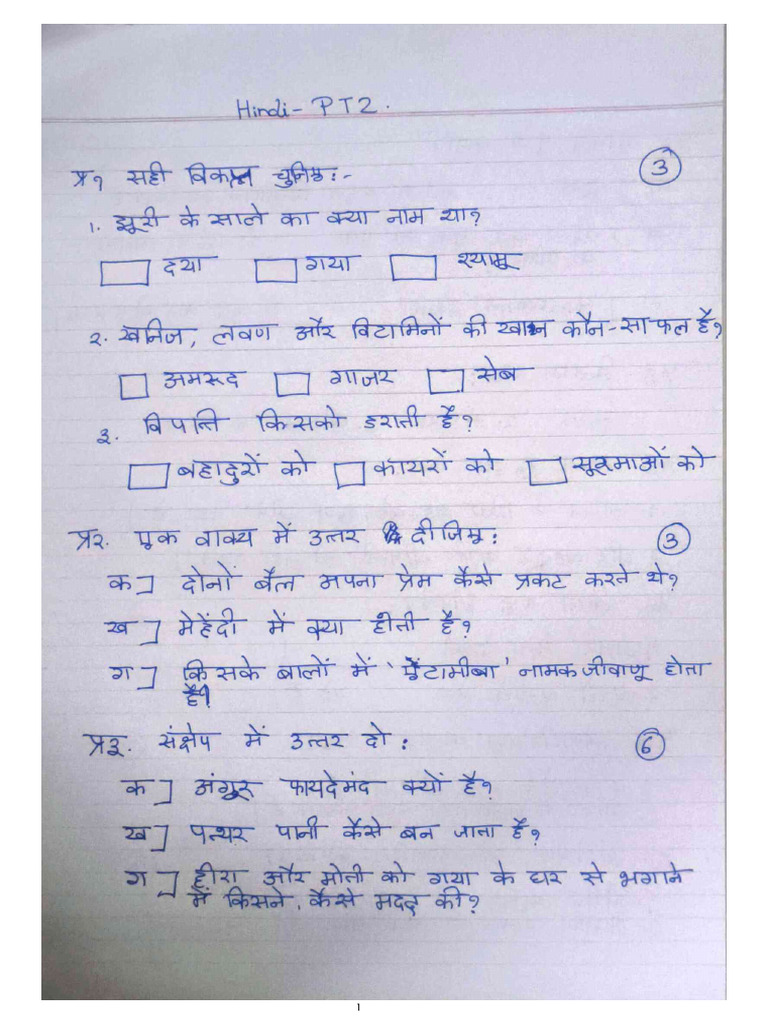 Hindi - PT2.
प्र१ सही विकल्प चुनिए:-
3
1. झूरी के साले का क्या नाम था?
दया गया श्यामू
२. खनिज, लवण और विटामिनों की खान कौन-सा फल है?
अमरूद गाजर सेब
३. विपत्ति किसको डराती है?
बहादुरों को कायरों को सूरमाओं को
प्र२. एक वाक्य में उत्तर दीजिए:
3
क] दोनों बैल अपना प्रेम कैसे प्रकट करते थे?
ख] मेहेंदी में क्या होती है?
ग] किसके बालों में 'एंटामीबा' नामक जीवाणू होता
है?
प्र३. संक्षेप में उत्तर दो:
6
क] अंगूर फायदेमंद क्यों है?
ख] पत्थर पानी कैसे बन जाता है?
ग] हीरा और मोती को गया के घर से भगाने
में किसने, कैसे मदद की?
१